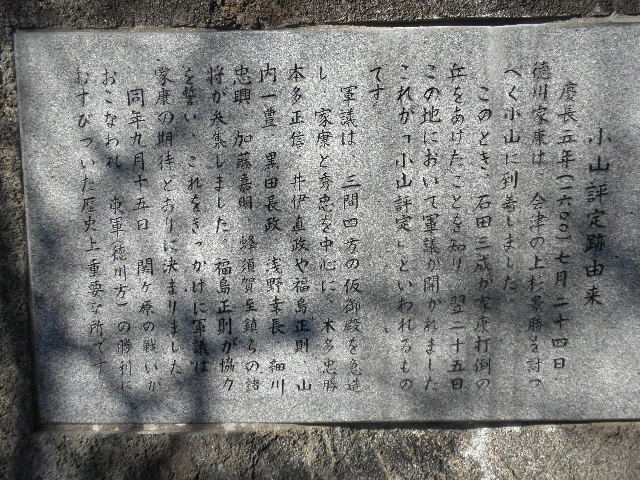 小山評定跡由来
慶長五年(一六〇〇)七月二十四日
徳川家康は、会津の上杉景勝を討つ
べく小山に到着しました。
このとき、石田三成が家康打倒の
兵をあげたことを知り、翌二十五日
この地において軍議が開かれました
これが「小山評定」といわれるもの
です。
軍議は、三間四方の仮御殿を急造
し、家康と秀忠を中心に、本多忠勝
本多正信、井伊直政や福島正則、山
内一豊、黒田長政、浅野幸長、細川
忠興、加藤嘉明、蜂須賀至鎮らの諸
将が参集しました。福島正則が協力
を誓い、これをきっかけに軍議は
家康の期待どおりに決まりました。
同年九月十五日、関ヶ原の戦いが
おこなわれ、東軍(徳川方)の勝利に
むすびついた歴史上重要な所です。